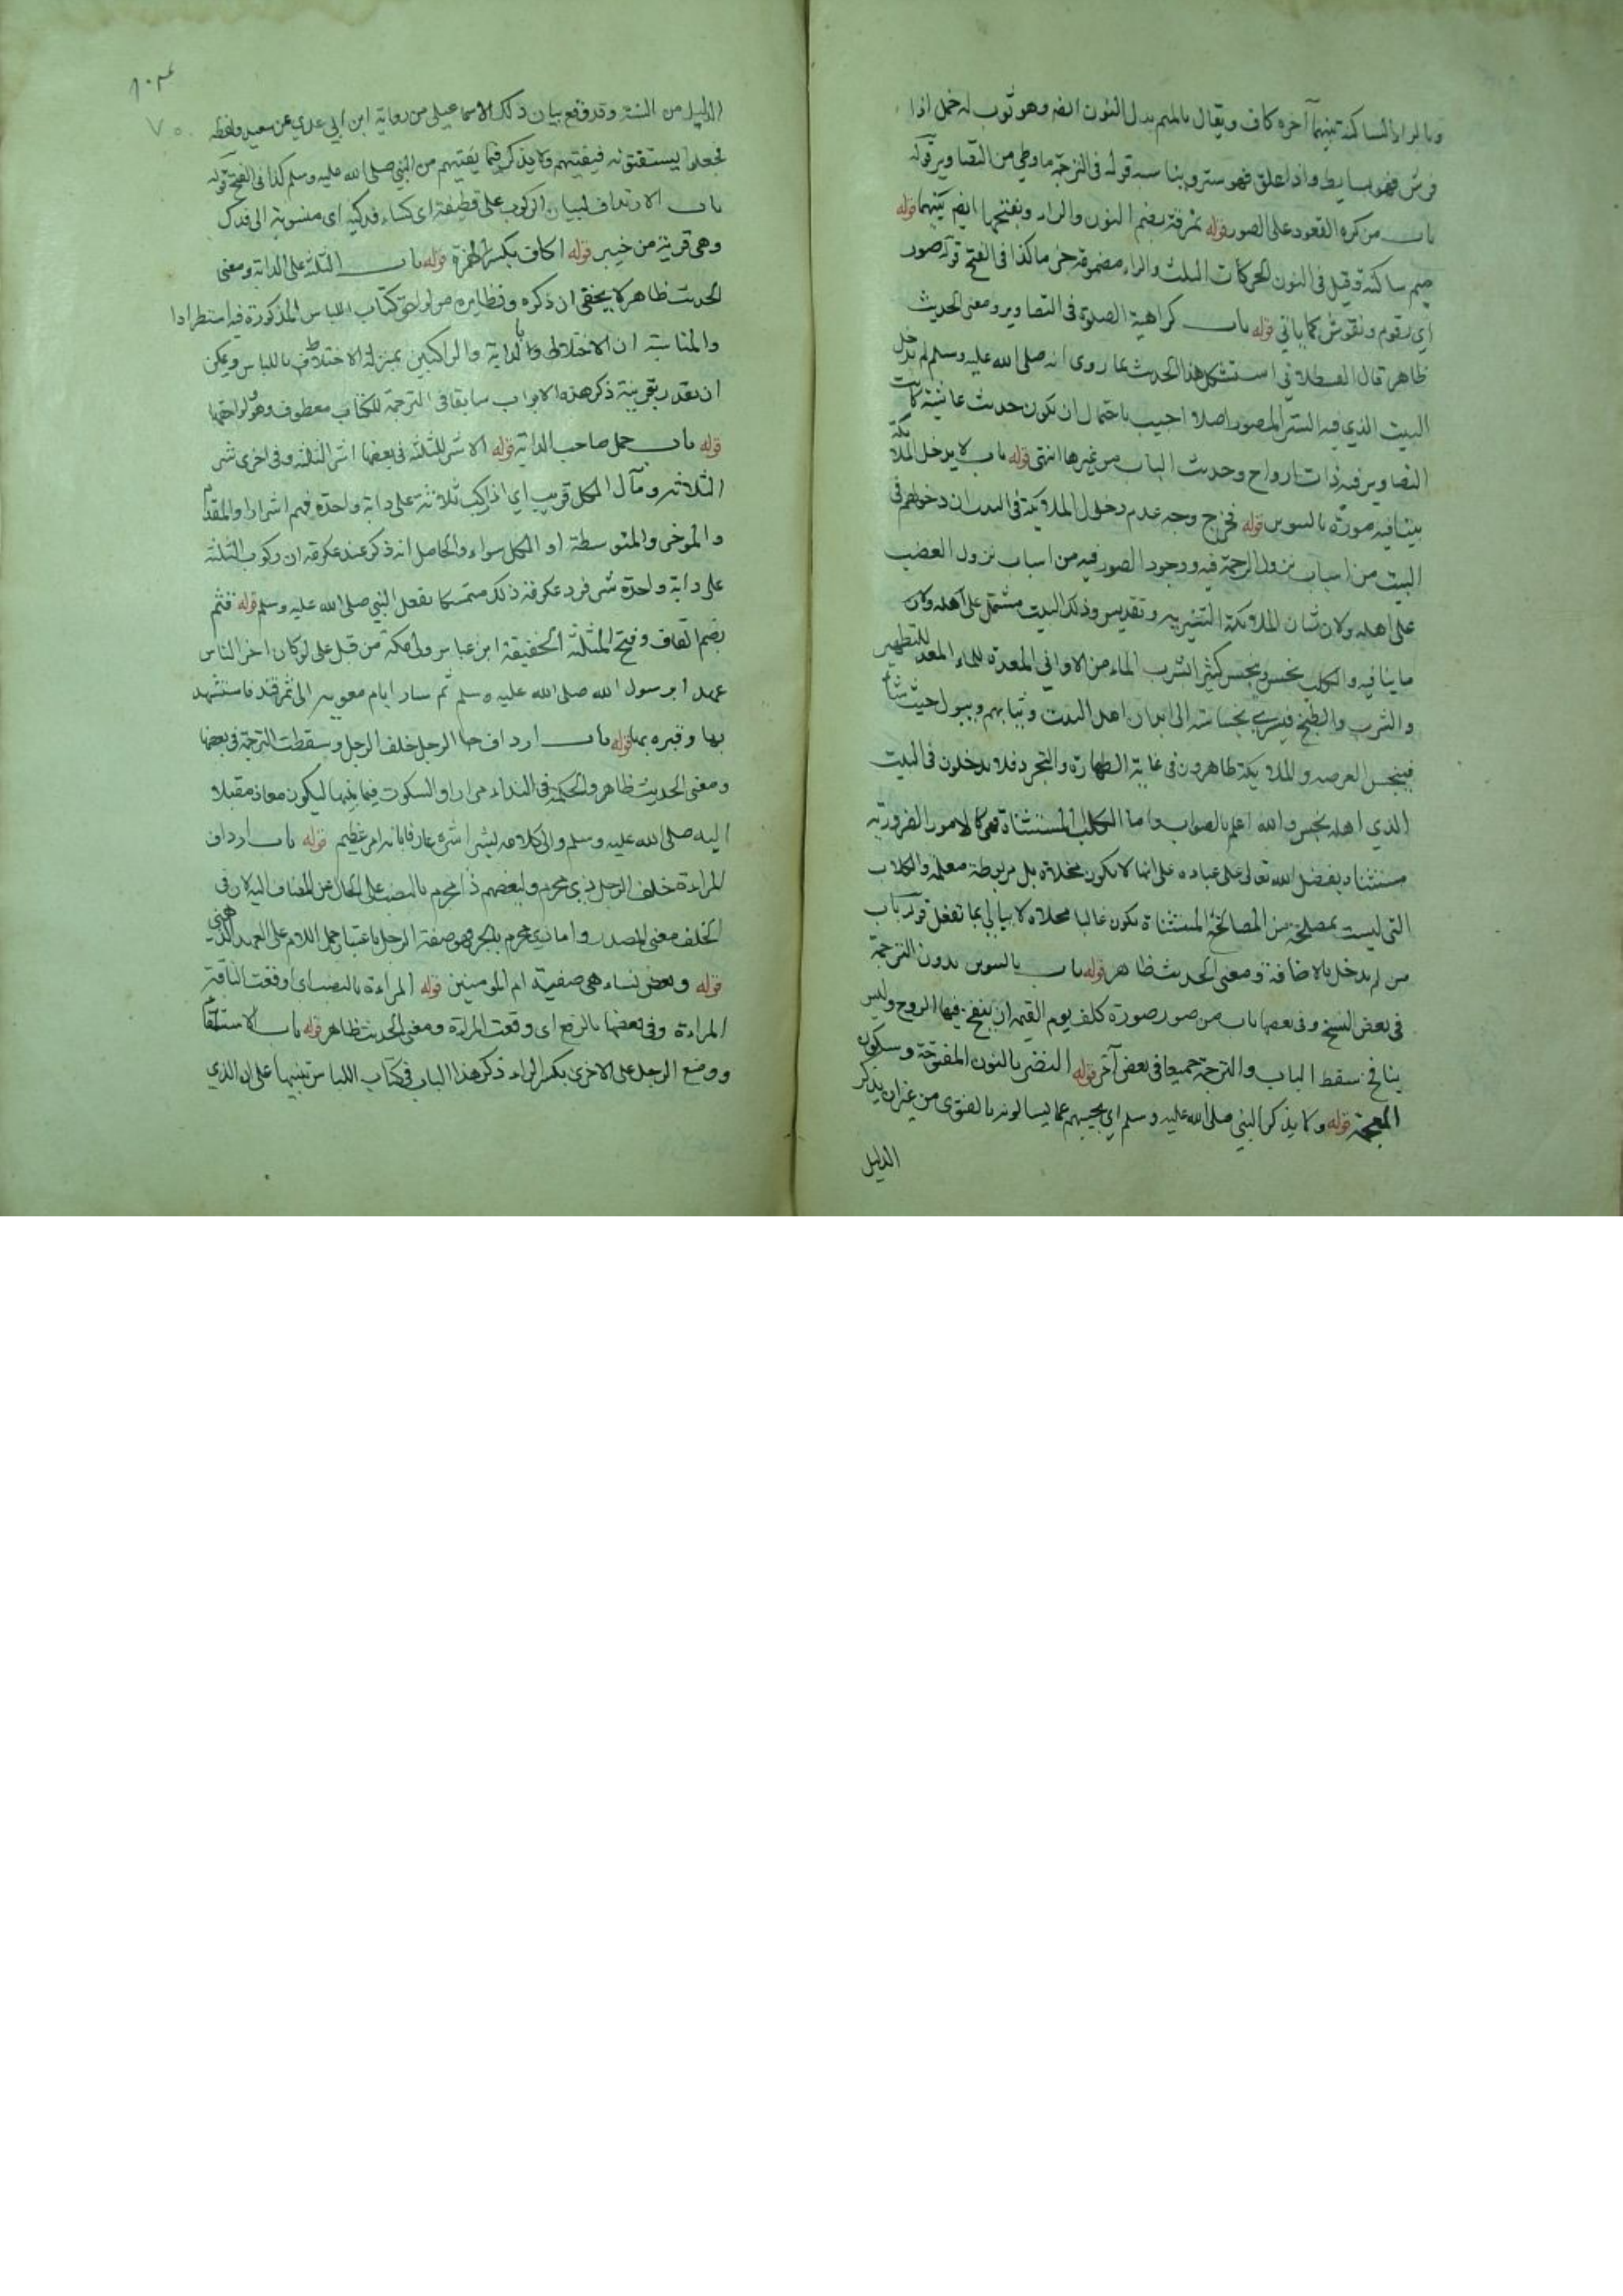 وبالراء الساكنة بينهما آخره كاف ويقال بالميم بدل النون ايضا وهو ثوب له خمل اذا
فرش فهو بساط واذا علق فهو ستر ويناسبه قوله فى الترجمة ما وطى من التصاوير قوله
باب من كره القعود على الصور قوله نمرقة بضم النون والراء وبفتحهما ايضا بينهما
ميم ساكنة وقيل فى النون الحركات الثلث والراء مضمومة جزما كذا فى الفتح قوله صور
اى رقوم ونقوش كما ياتي قوله باب كراهية الصلوة فى التصاوير ومعنى الحديث
ظاهر قال القسطلاني استشكل هذا الحديث بما روى انه صلى الله عليه وسلم لم يدخل
البيت الذي فيه الستر المصور اصلا اجيب باحتمال ان يكون حديث عائشة كانت
التصاوير فيه ذات ارواح وحديث الباب من غيرها انتهى قوله باب لا يدخل الملائكة
بيتا فيه صورة بالتنوين قوله فخرج وجه عدم دخول الملائكة فى البيت ان دخولهم فى
البيت من اسباب نزول الرحمة فيه ووجود الصور فيه من اسباب نزول الغضب
على اهله ولان شان الملائكة التنزيه وتقديس وذلك البيت مشتمل على اهله وكان
ما ينافيه والكلب نجس وينجس كثير الشرب الماء من الاواني المعدة للماء المعد للتطهير
والشرب والطبخ فيسري نجاسته الى ابدان اهل البيت وثيابهم ويبول حيث شاء
فينجس العرصه والملائكة طاهرون فى غاية الطهارة والتجرد فلا يدخلون فى البيت
الذي اهله نجس والله اعلم بالصواب واما الكلب المستثناة فهى كالامور الضرورية
مستثناة بفضل الله تعالى على عباده على انها لا تكون مخلاة بل مربوطة معلمه والكلاب
التى ليست لمصلحة من المصالحة المستثناة تكون غالبا مخلاة لا يبالى بما تفعل قوله باب
من لم يدخل بالاضافة ومعنى الحديث ظاهر قوله باب بالتنوين بدون الترجمة
فى بعض النسخ وفى بعضها باب من صور صورة كلف يوم القيمة ان ينفخ فيها الروح وليس
بنافخ سقط الباب والترجمة جميعا فى بعض آخر قوله النضر بالنون المفتوحة وسكون
المعجمة قوله ولا يذكر النبى صلى الله عليه وسلم اى يجيبهم عما يسالونه بالفتوى من غير ان يذكر
الدليل
٧٥٠
الدليل من السنة وقد وقع بيان ذلك الاسماعيلي من رواية ابن ابي عدي عن سعيد ولفظه
فجعلوا يستفتونه فيفتيهم ولا يذكر فيما يفتيهم من النبي صلى الله عليه وسلم كذا فى الفتح قوله
باب الارتداف لبيان الركوب على قطيفة اى كساء فدكية اى منسوبة الى فدك
وهى قرية من خيبر قوله اكاف بكسر الهمزة قوله باب الثلثة على الدابة ومعنى
الحديث ظاهر لا يخفى ان ذكره ونظايره من لواحق كتاب اللباس المذكورة فيه استطرادا
والمناسبة ان الاختلاط بالدابة والراكبين بمنزلة الاختلاط باللباس ويمكن
ان يقدر بقرينة ذكر هذه الابواب سابقا فى الترجمة للكتاب معطوف وهو لواحقها
قوله باب حمل صاحب الدابة قوله الاشر للثلثة فى بعضها اشر الثلثة وفى اخرى شر
الثلاثه ومآل الكل قريب اي اذا ركب ثلاثة على دابة واحدة فهم اشرار او المقدم
والموخر والمتوسطة او الكل سواء والحاصل انه ذكر عند عكرمة ان ركوب الثلثة
على دابة واحدة شر فرد عكرمة ذلك متمسكا بفعل النبى صلى الله عليه وسلم قوله قثم
بضم القاف وفتح المثلثة الخفيفة ابن عباس ولى مكة من قبل على وكان اخر الناس
عهدا برسول الله صلى الله عليه وسلم ثم سار ايام معويه الى سمرقند فاستشهد
بها وقبره بها قوله باب ارداف الرجل خلف الرجل وسقطت الترجمة فى بعضها
ومعنى الحديث ظاهر والحكمة فى النداء مرارا والسكوت فيما بينها ليكون معاذ مقبلا
اليه صلى الله عليه وسلم والى كلامه عارفا بانه امر عظيم قوله باب ارداف
المراءة خلف الرجل ذي محرم ولبعضهم ذا محرم بالنصب على الحال عن المضاف اليه لان فى
الخلف معنى المصدر واما ذي محرم بالجر فهو صفة الرجل باعتبار حمل اللام على العهد الذهنى
قوله وبعض نساءه هى صفية ام المومنين قوله المراءة بالنصب اى اوقعت الناقة
المراءة وفى بعضها بالرفع اى وقعت المراءة ومعنى الحديث ظاهر قوله باب الاستلقاء
ووضع الرجل على الاخرى بكسر الراء ذكر هذا الباب فى كتاب اللباس تنبيها على ان الذي